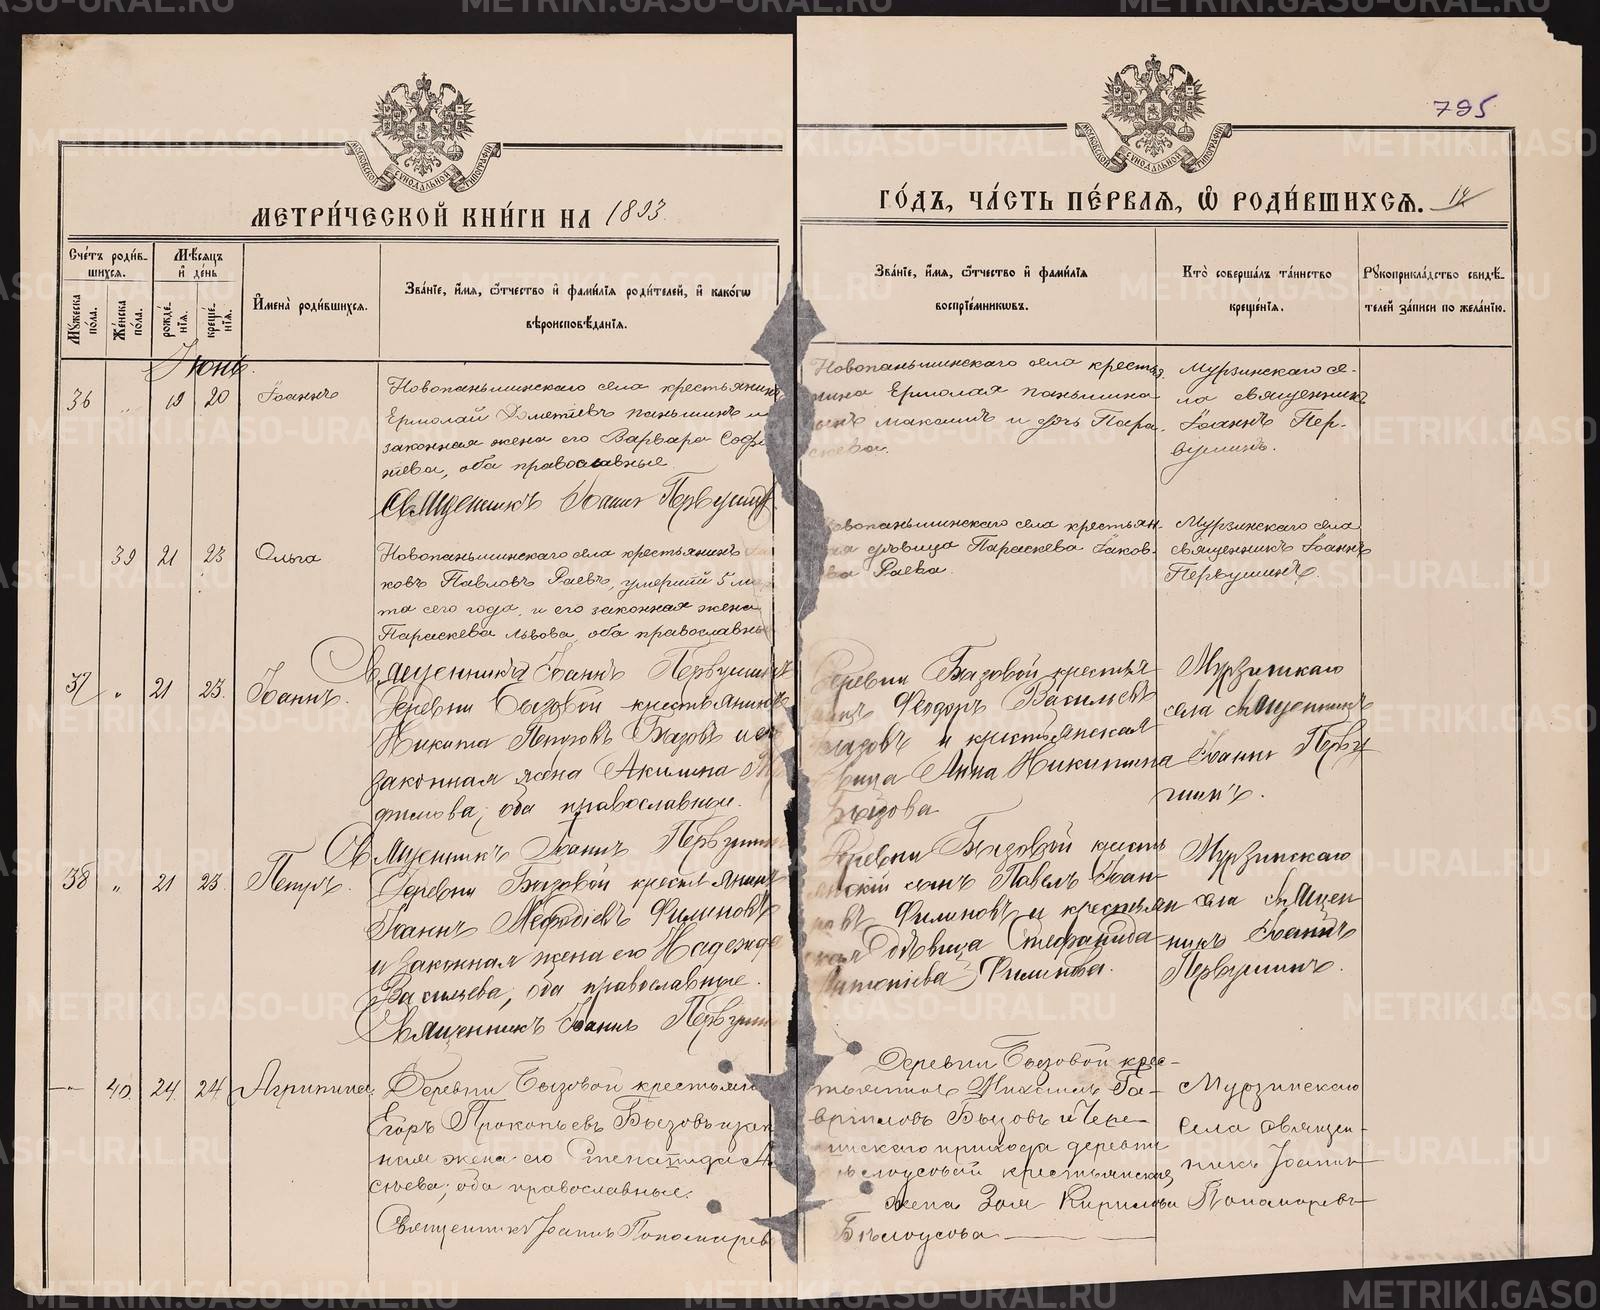 795
МЕТРИ́ЧЕСКОЙ КНИ́ГИ НА 1893.
ГО́ДЪ, ЧА́СТЬ ПЕ́РВАЯ, Ѡ҆ РОДИ́ВШИХСЯ. 14
Сче́тъ роди́в-
шихся.
Мѣ́сяцъ
и҆ де́нь
Мꙋ́жеска по́ла.
Же́нска по́ла.
рожде́-
нїя.
креще́-
нїя.
И҆мена̀ роди́вшихся.
Зва́нїе, и҆́мя, ѻ҆́тчество и҆ фами́лїя роди́телей, и҆ како́гѡ
вѣроисповѣ́данїя.
Зва́нїе, и҆́мя, ѻ҆́тчество и҆ фами́лїя
воспрїе́мниковъ.
Кто̀ соверша́лъ та́инство
креще́нїя.
Рꙋкоприкла́дство свидѣ́-
телей за́писи по жела́нїю.
Іюнь.
36 " 19 20 Іоаннъ
Новопаньшинскаго села крестьянинъ
Ермолай Дметіевъ Паньшинъ и
законная жена его Варвара Софо-
нтева, оба православные.
Священникъ Іоаннъ Первушинъ
Новопаньшинскаго села крестья-
нина Ермолая Паньшина
сынъ Максимъ и дочь Пара-
скева.
Мурзинскаго се-
ла священникъ
Іоаннъ Пер-
вушинъ.
39 21 23 Ольга
Новопаньшинскаго села крестьянинъ
ковъ Павловъ Раевъ, умершій 5 ма
та сего года, и его законная жена
Параскева Львова, оба православные
Священникъ Іоаннъ Первушинъ
Новопаньшинскаго села крестьян-
ская дѣвица Параскева Іаков-
ва Раева.
Мурзинскаго села
священникъ Іоаннъ
Первушинъ.
37 " 21 23. Іоаннъ.
Деревни Бызовой крестьянинъ
Никита Петровъ Бызовъ и его
законная жена Акилина
филова, оба православные.
Священникъ Іоаннъ Первушинъ
Деревни Бызовой крестья
нинъ Феодоръ Васильевъ
Бызовъ и крестьянская
дѣвица Анна Никитина
Бызова
Мурзинскаго
села священникъ
Іоаннъ Перву
шинъ.
38 " 21 23. Петръ.
Деревни Бызовой крестьянинъ
Іоаннъ Меѳодіевъ Филиновъ
и законная жена его Надежда
Васильева, оба православные.
Священникъ Іоаннъ Первушинъ
Деревни Бызовой кресть
янскій сынъ Павелъ Іоан-
новъ Филиновъ и крестьян
ская дѣвица Стефанида
Антоніева Филинова.
Мурзинскаго
села священ
никъ Іоаннъ
Первушинъ.
— 40. 24. 24 Агрипина.
Деревни Бызовой крестьянинъ
Егоръ Прокопьевъ Бызовъ и зако
ная жена его Степанида А
сѣева, оба православные.
Священникъ Іоаннъ Пономаревъ
Деревни Бызовой крес-
тьянинъ Михаилъ Га-
вріиловъ Бызовъ и Чере-
мискаго прихода деревни
Бѣлоусовой крестьянская
жена Зоя Кирилова
Бѣлоусова
Мурзинскаго
села священ-
никъ Іоаннъ
Пономаревъ
METRIKI.GASO-URAL.RU